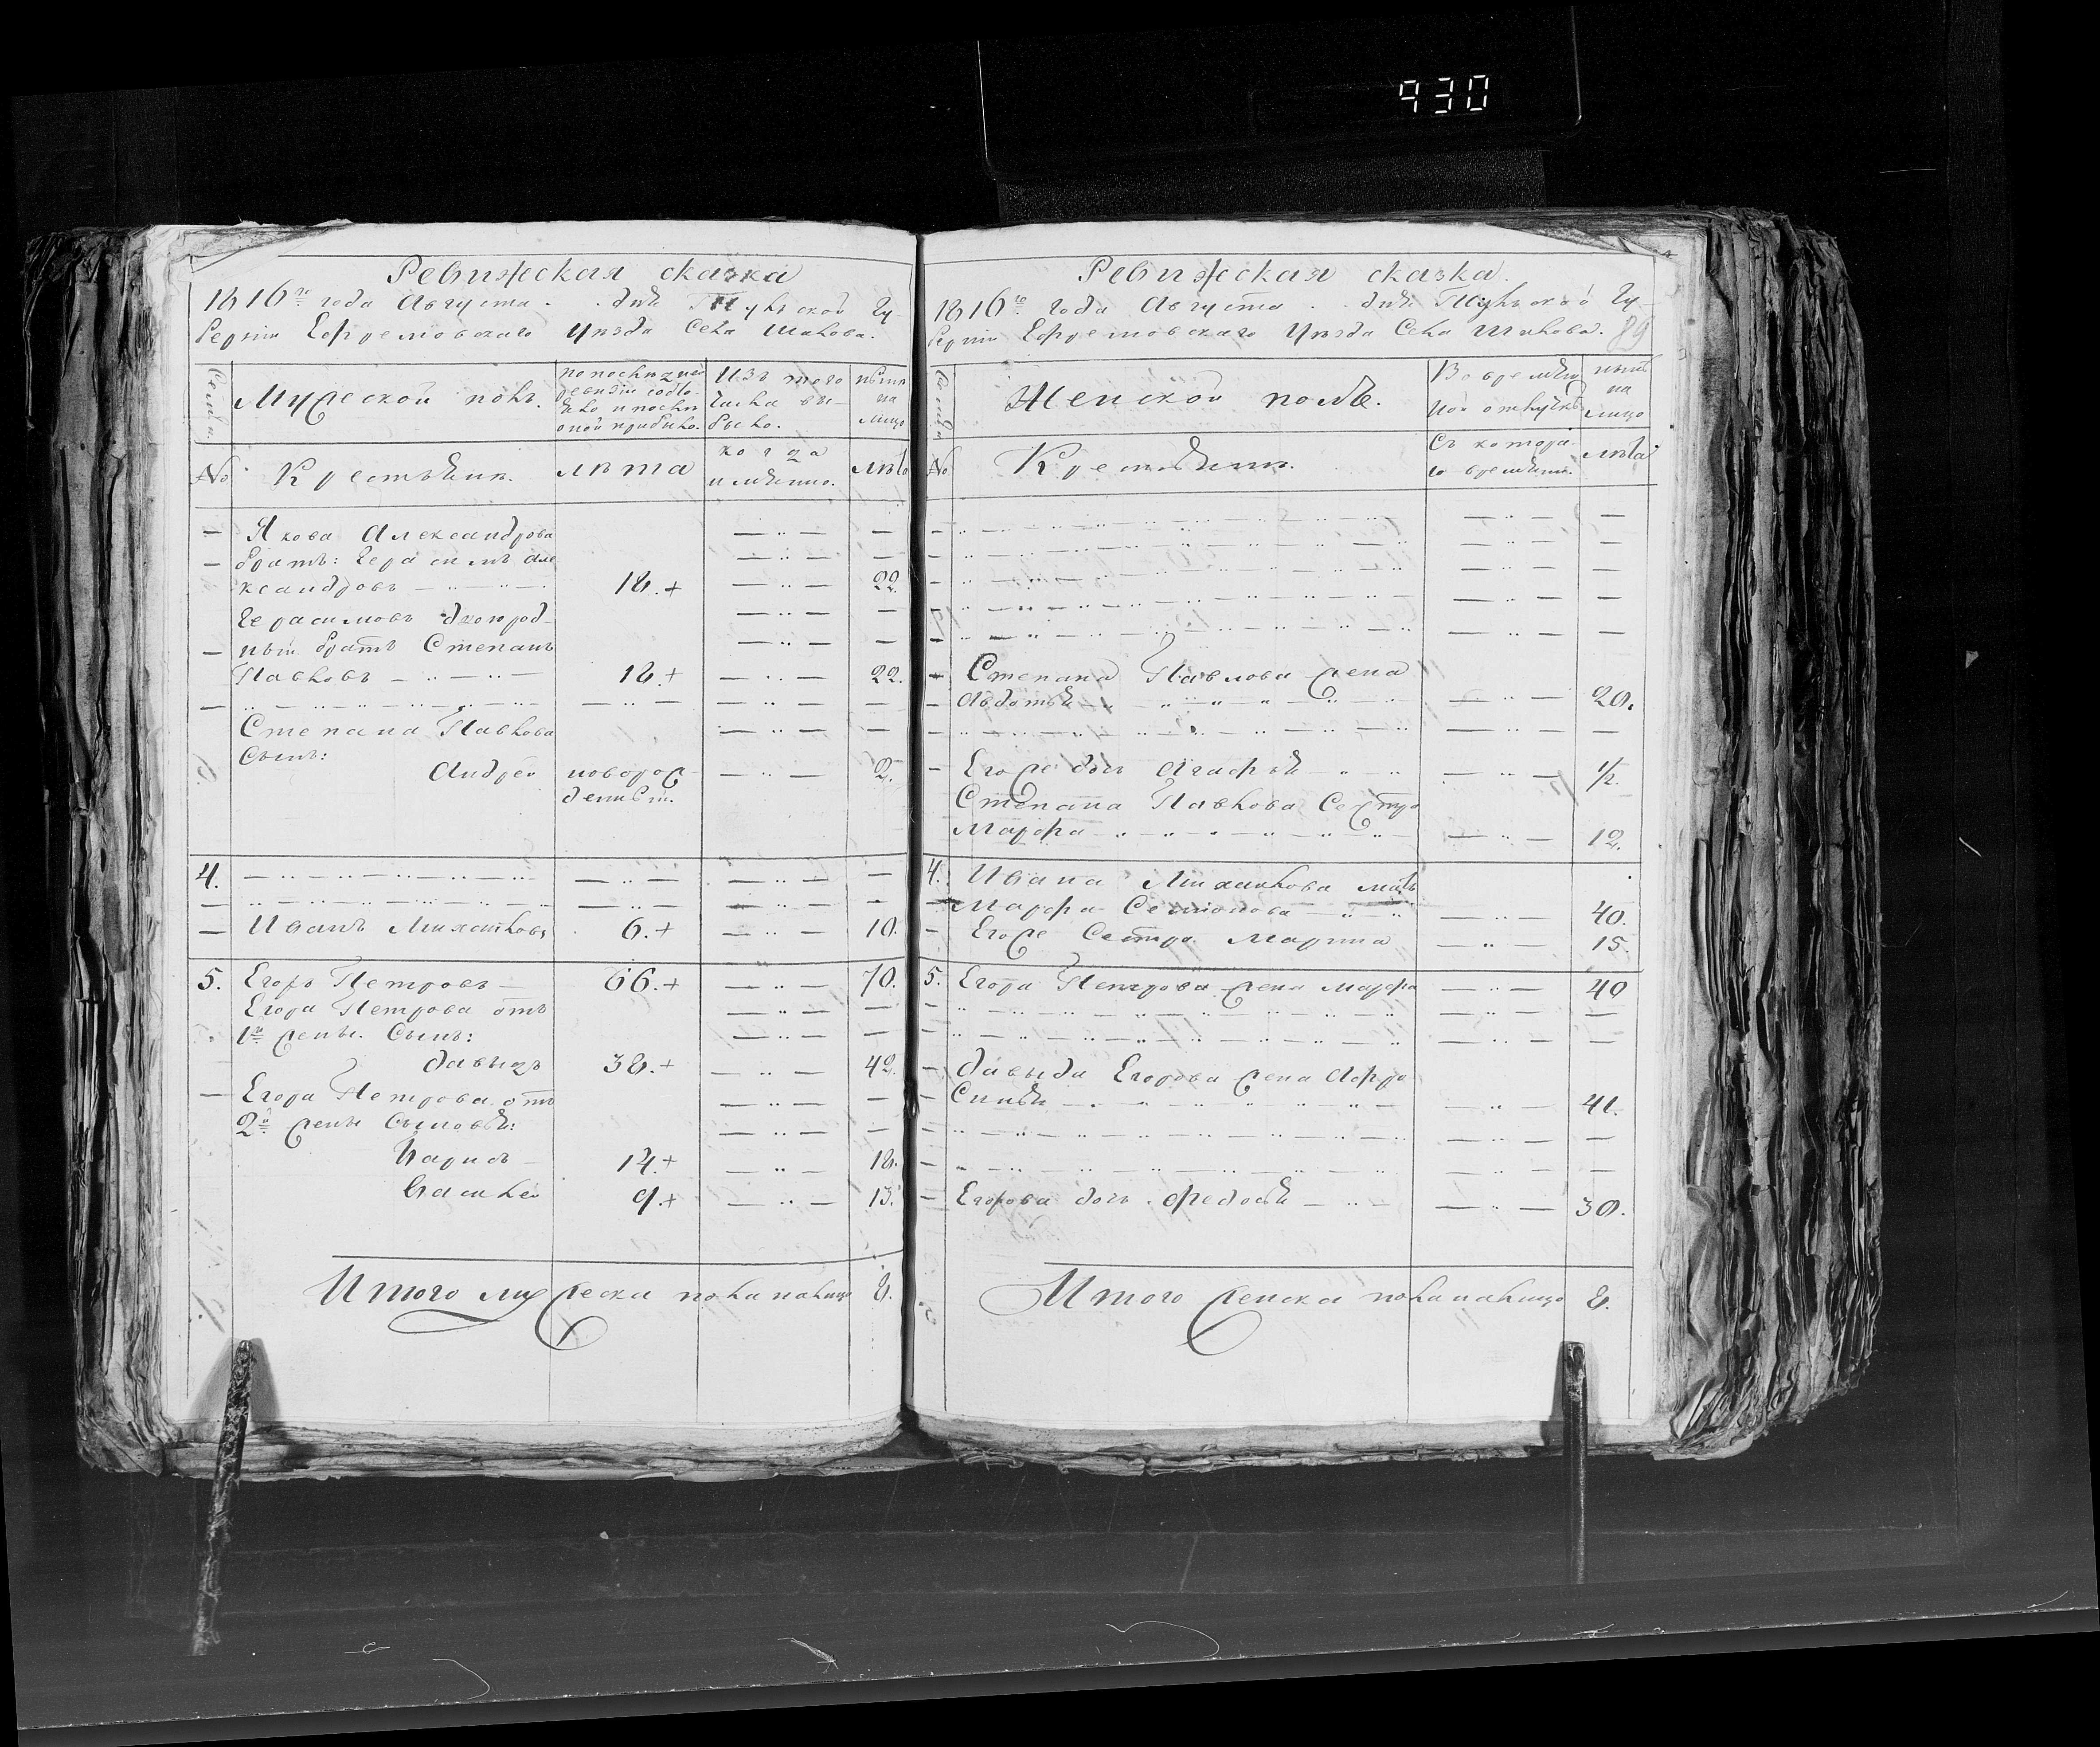 930
Ревижская сказка
1816го года Августа . . дня Тульской Гу-
бернии Ефремовскаго уезда Села Шилова.
Семьи
Мужеской полъ.
по последней
ревизии состо-
яло и после
оной прибыло.
Изъ того
числа вы-
было.
ныне
на
лицо
№
Крестьяня.
лета
когда
имянно.
лета
Якова Александрова
братъ: Герасимъ Але
ксандровъ 18.+ 22.
Герасимовъ двоюрод-
ный братъ Степанъ
Павловъ 18.+ 22.
Степана Павлова
Сынъ:
Андрей новорож-
денный. 2.
4.
Иванъ Михайловъ 6.+ 10.
5. Егоръ Петровъ 66.+ 70.
Егора Петрова отъ
1й жены. Сынъ:
давыдъ 38.+ 42.
Егора Петрова отъ
2й жены Сыновья:
14.+ 18.
9.+ 13.
Итого мужеска пола налицо 8.
Ревижская сказка.
1816го года Августа . . дня Тульской Гу-
бернии Ефремовскаго уезда Села Шилова. 89
Семьи
Женской полъ.
Во времянной отлучке
ныне
на
лицо
№
Крестьяня.
Съ котора-
го времяни.
лета
Степана Павлова жена
Авдотья 20.
Его же дочь Агафья 1/2.
Степана Павлова Сестра
Марфа 12.
4. Ивана Михайлова мать
Марфа Семионова 40.
Его же Сестра Марина 15.
5. Егора Петрова жена марфа 40
давыда Егорова жена Афро
Синья 41.
Егорова дочь Федосья 30.
Итого женска пола налицо 8.